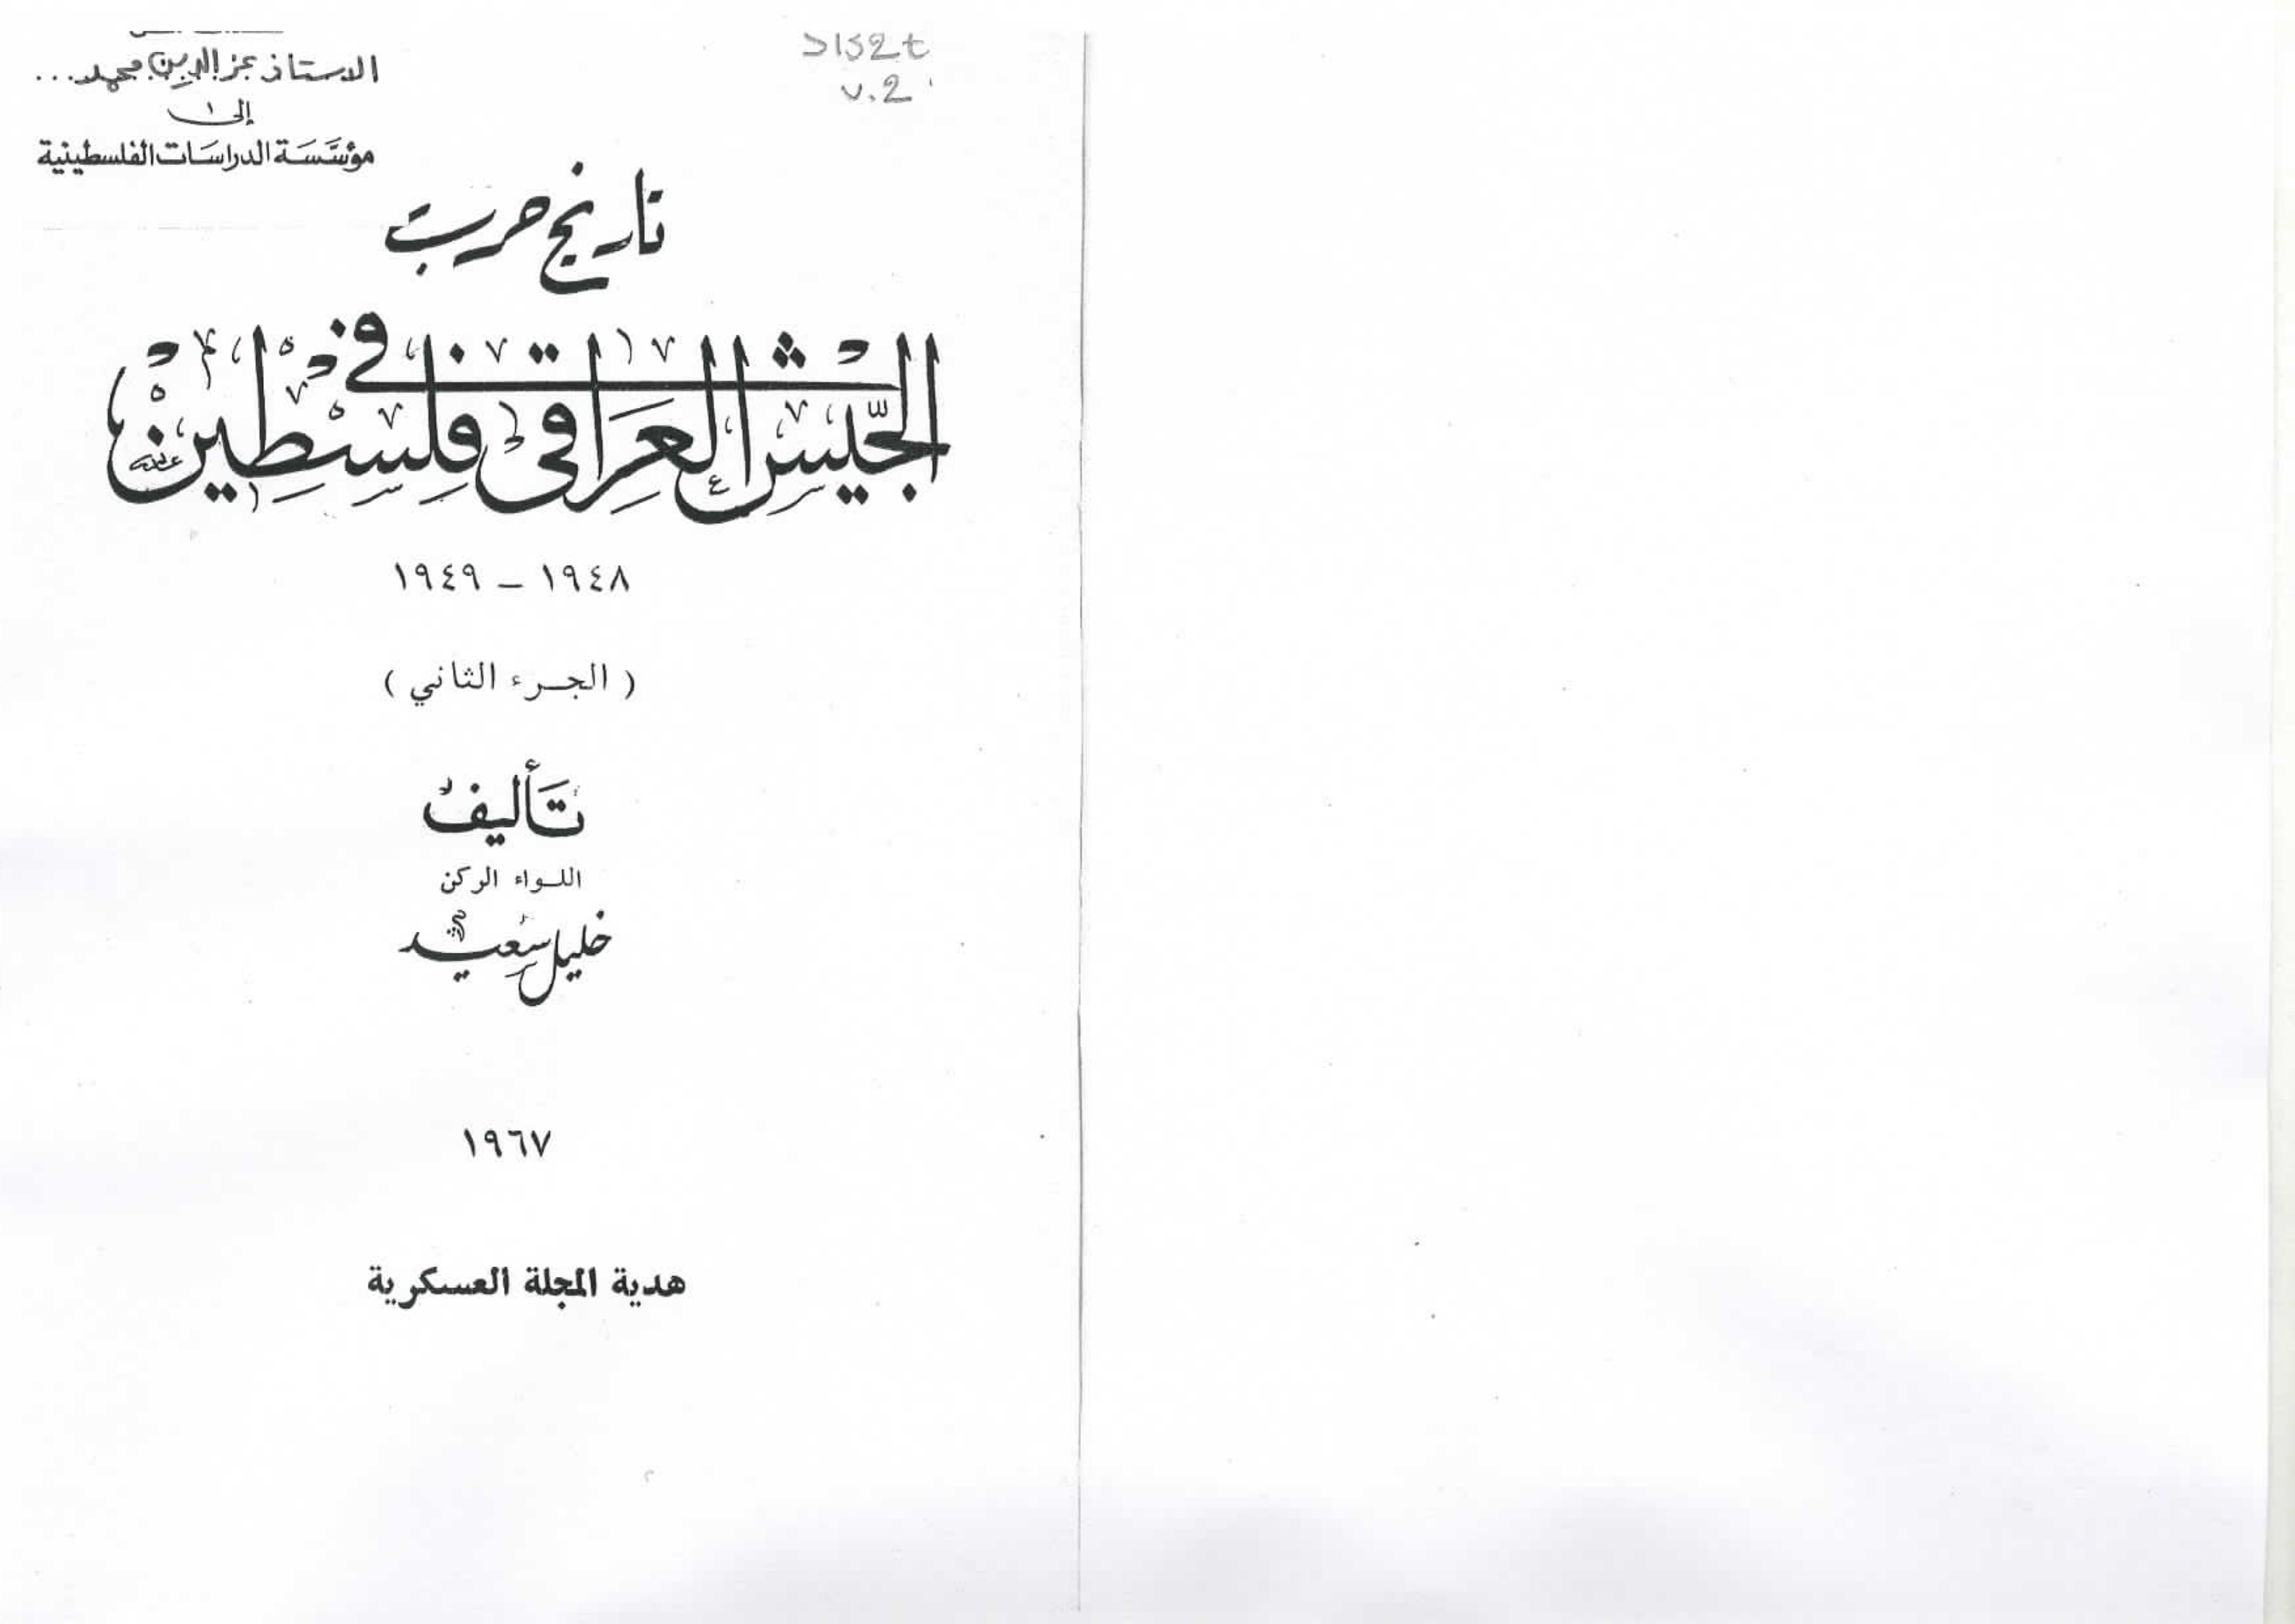 الاستاذ عز الدين محمد...
إلى
مؤسَّسَة الدراسَات الفلسطينية
v.2
تاريخ حرب
الجَيْش العِرَاقي في فِلِسْطِين
١٩٤٨ – ١٩٤٩
( الجزء الثاني )
تَأليف
اللواء الركن
خليل سَعيد
١٩٦٧
هدية المجلة العسكرية